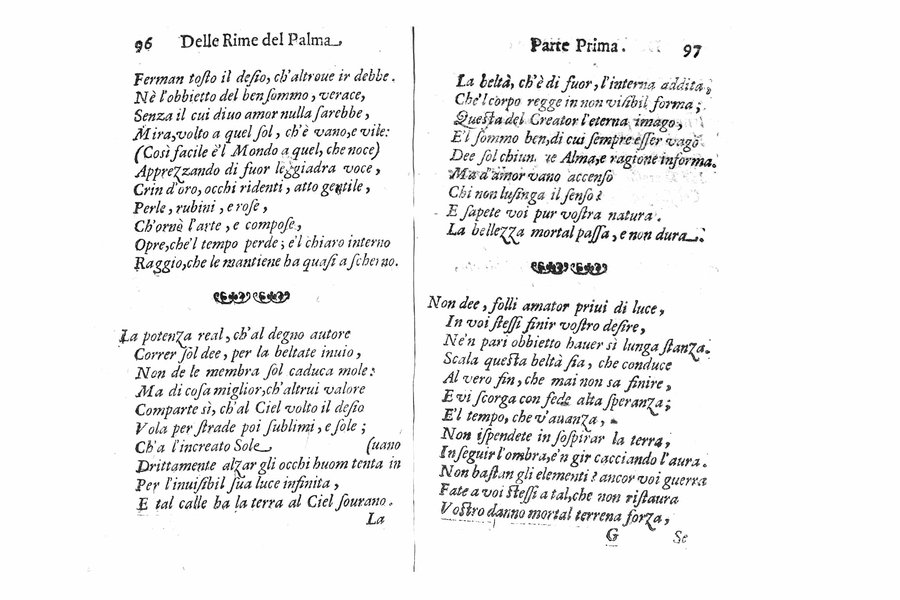 96 Delle Rime del Palma
Ferman toſto il deſio, ch'altroue ir debbe.
Nè l'obbietto del ben ſommo, verace,
Senza il cui diuo amor nulla ſarebbe,
Mira, volto a quel ſol, ch'è vano, e vile:
(Così facile è'l Mondo a quel, che noce)
Apprezzando di fuor leggiadra voce,
Crin d'oro, occhi ridenti, atto gentile,
Perle, rubini, e roſe,
Ch'ornè l'arte, e compoſe,
Opre, che'l tempo perde; e'l chiaro interno
Raggio, che le mantiene ha quaſi a ſcherno.
La potenza real, ch'al degno autore
Correr ſol dee, per la beltate inuio,
Non de le membra ſol caduca mole:
Ma di coſa miglior, ch'altrui valore
Comparte sì, ch'al Ciel volto il deſio
Vola per ſtrade poi ſublimi, e ſole;
Ch'a l'increato Sole
(uano
Drittamente alzar gli occhi huom tenta in
Per l'inuiſibil ſua luce infinita,
E tal calle ha la terra al Ciel ſourano.
La
Parte Prima. 97
La beltà, ch'è di fuor, l'interna addita,
Che'l corpo regge in non viſibil forma;
Queſta del Creator l'eterna imago,
E'l ſommo ben, di cui ſempre eſſer vago
Dee ſol Alma, e ragione informa.
Ma d'amor vano accenſo
Chi non luſinga il ſenſo?
E ſapete voi pur voſtra natura.
La bellezza mortal paſſa, e non dura.
Non dee, folli amator priui di luce,
In voi ſteſſi finir voſtro deſire,
Ne'n pari obbietto hauer sì lunga ſtanza.
Scala queſta beltà ſia, che conduce
Al vero fin, che mai non sa finire,
E vi ſcorga con fede alta ſperanza;
E'l tempo, che v'auanza,
Non iſpendete in ſoſpirar la terra,
In ſeguir l'ombra, e'n gir cacciando l'aura.
Non baſtan gli elementi? ancor voi guerra
Fate a voi ſteſſi a tal, che non riſtaura
Voſtro danno mortal terrena forza,
G Se